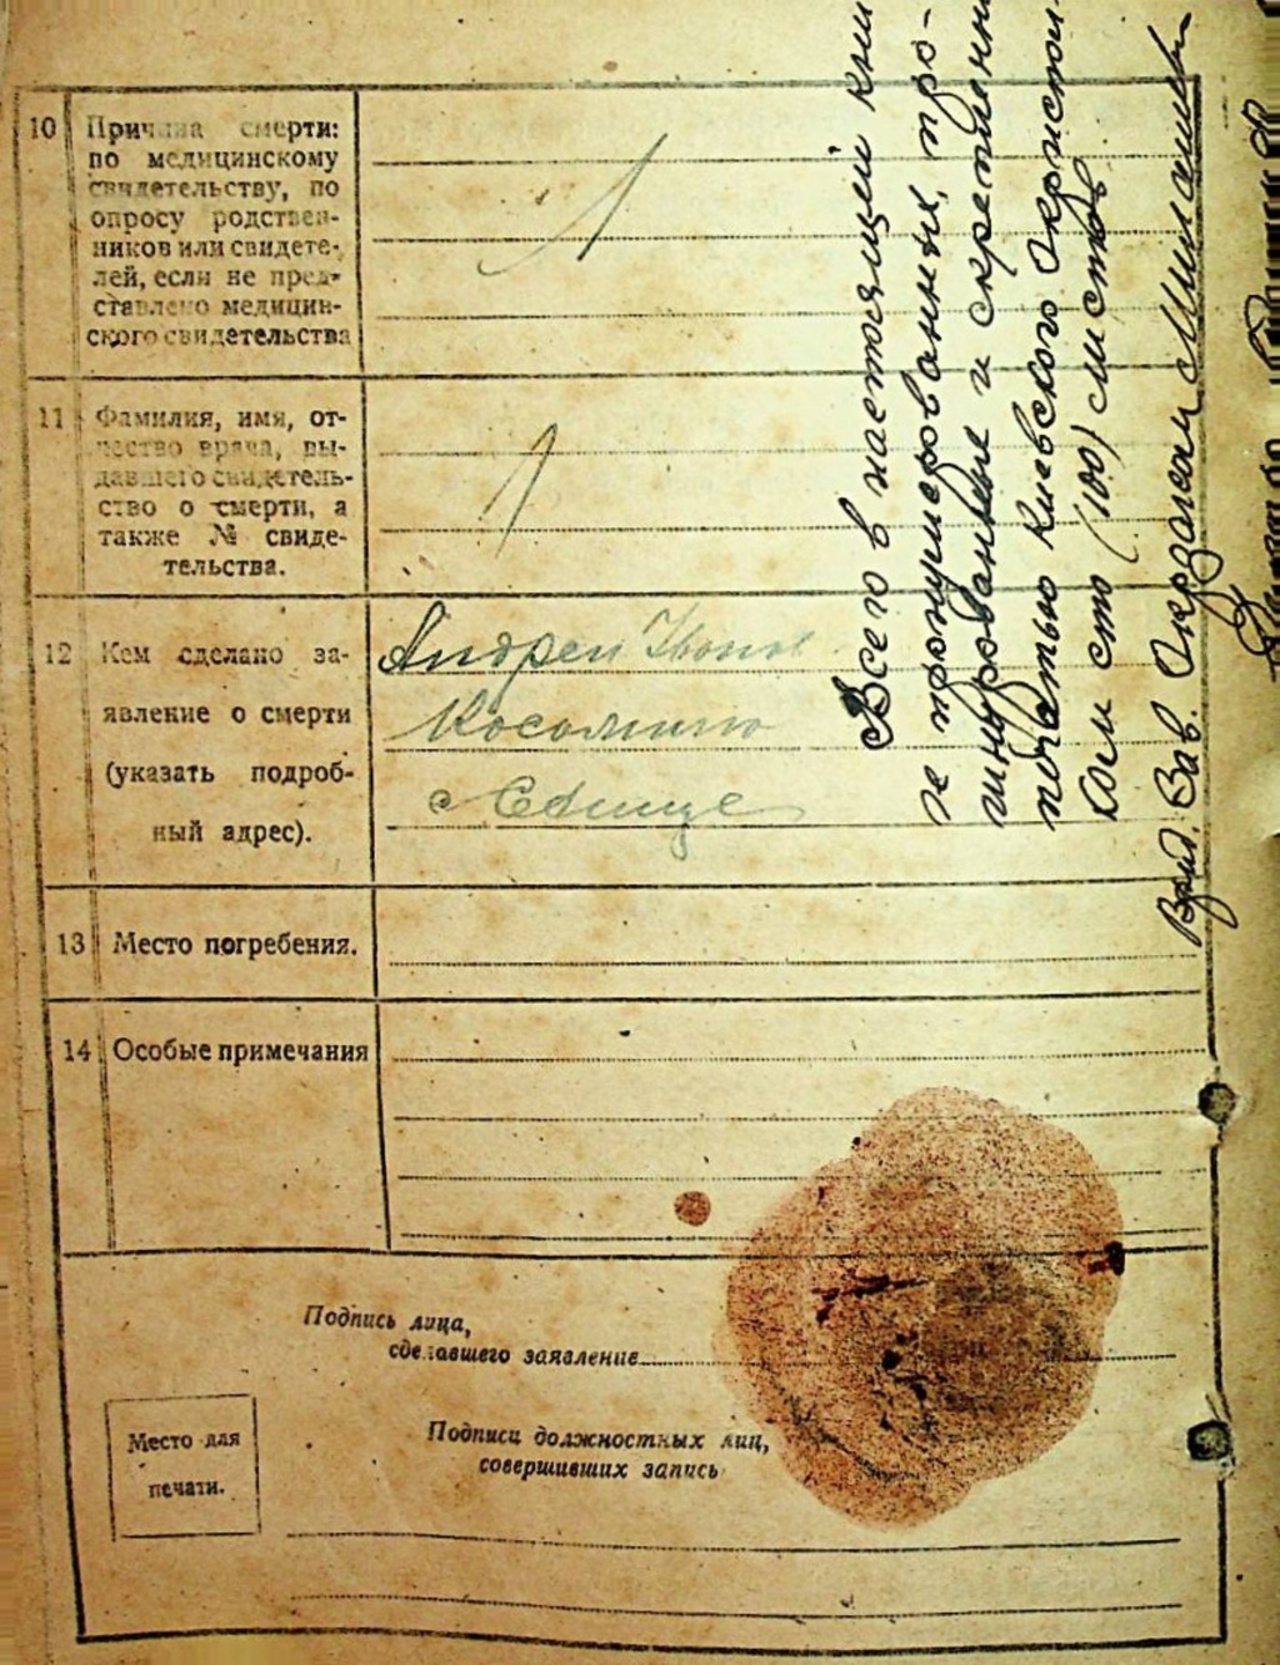 10
Причина смерти:
по медицинскому
свидетельству, по
опросу родствен-
ников или свидете-
лей, если не пред-
ставлено медицин-
ского свидетельства
11
Фамилия, имя, от-
чество врача, вы-
давшего свидетель-
ство о смерти, а
также № свиде-
тельства.
12
Кем сделано за-
явление о смерти
(указать подроб-
ный адрес).
Андрей
13
Место погребения.
14
Особые примечания
Подпись лица,
сделавшего заявление
Место для
печати.
Подписи должностных лиц,
совершивших запись
Всего в настоящей кни
ге пронумерованных, про-
шнурованные и скрепленн
печатью Киевского
сто (100) листов
Врид. Зав.